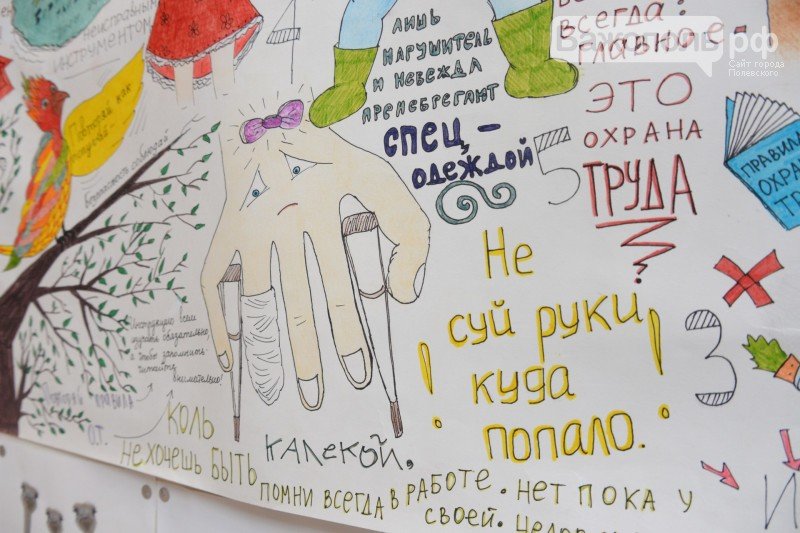 неисправным
инструментом
повторяй как
Безопасность соблюдай
Инструкцию всем
изучать обязательно,
а чтобы запомнить -
читайте
внимательно!
правила
от
4
лишь
нарушитель
и невежда
пренебрегают
спец-
одеждой
5
всегда?
главное -
это
охрана
труда
?
Правил
охран
тр
Важголь.рф
Сайт города
Полевского
Не
суй руки
куда
попало.
!
!
3
Коль
не хочешь быть калекой,
помни всегда в работе. Нет пока у
своей.